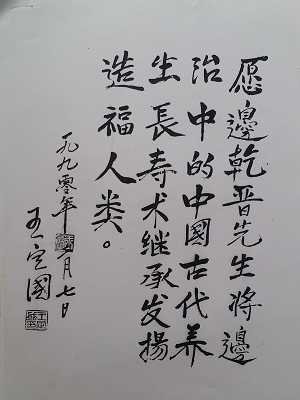 愿邊乾晋先生將邊
治中的中國古代养
生長寿术继承发揚
造福人类。
一九九零年月七日
王定國